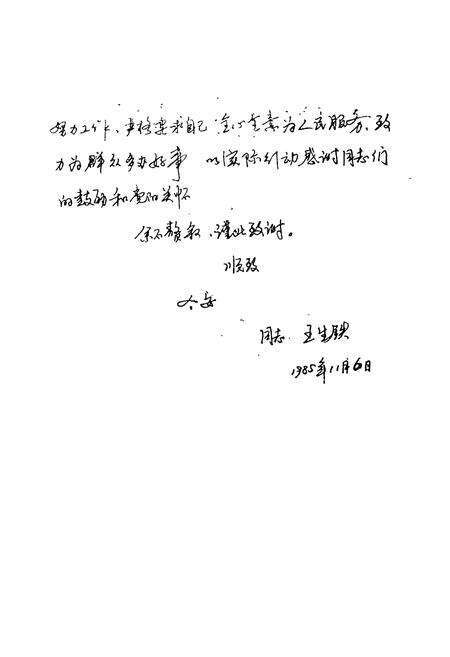 努力工作、严格要求自己 全心全意为人民服务、致
力为群众多办好事 以实际行动感谢同志们
的鼓励和党的关怀
余不赘叙、谨此致谢。
顺致
大安
同志 王生铁
1985年11月6日